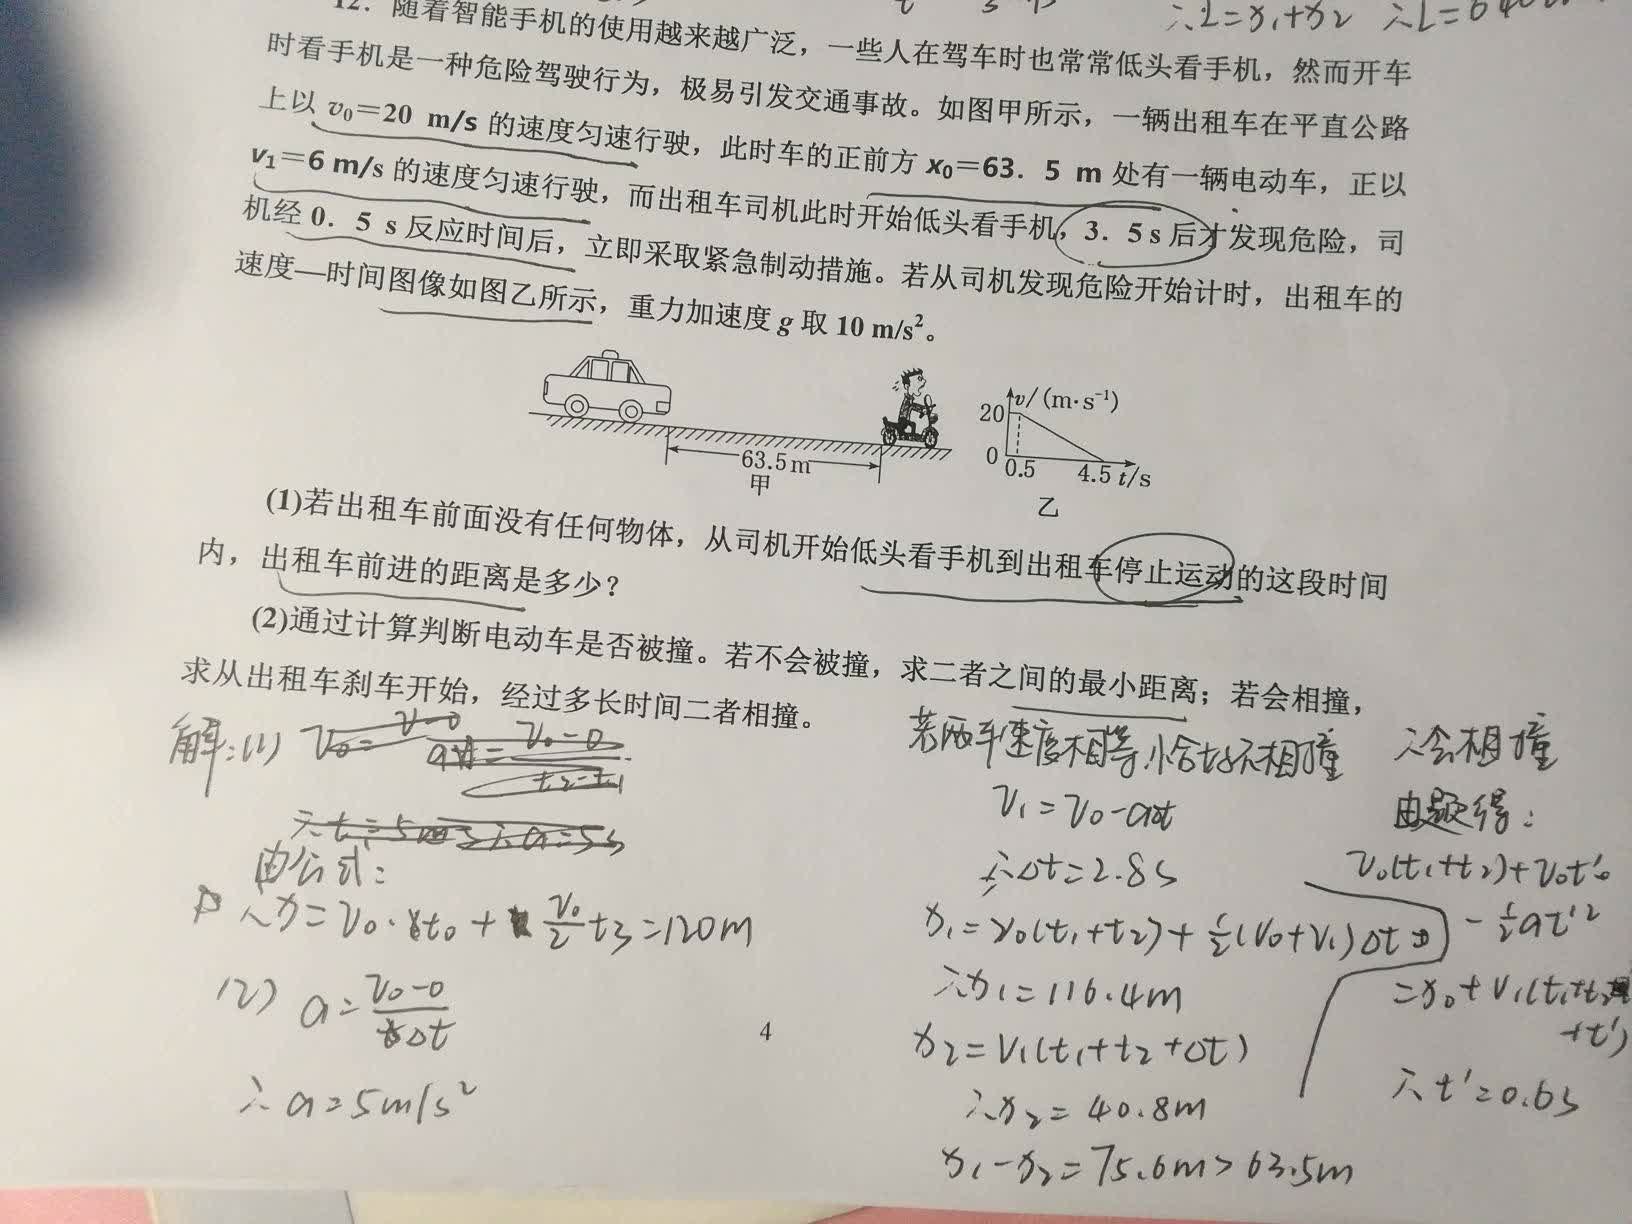 12. 随着智能手机的使用越来越广泛，一些人在驾车时也常常低头看手机，然而开车
∴L=x₁+x₂
时看手机是一种危险驾驶行为，极易引发交通事故。如图甲所示，一辆出租车在平直公路
上以 v₀=20 m/s 的速度匀速行驶，此时车的正前方 x₀=63. 5 m 处有一辆电动车，正以
v₁=6 m/s 的速度匀速行驶，而出租车司机此时开始低头看手机，3. 5 s 后才发现危险，司
机经 0. 5 s 反应时间后，立即采取紧急制动措施。若从司机发现危险开始计时，出租车的
速度—时间图像如图乙所示，重力加速度 g 取 10 m/s²。
63.5 m
甲
v/(m·s⁻¹)
20
0
0.5
4.5 t/s
乙
(1)若出租车前面没有任何物体，从司机开始低头看手机到出租车停止运动的这段时间
内，出租车前进的距离是多少？
(2)通过计算判断电动车是否被撞。若不会被撞，求二者之间的最小距离；若会相撞，
求从出租车刹车开始，经过多长时间二者相撞。
解:(1)
由公式:
x=v₀·t₀+v₀/2 t₃=120m
(2) a=v₀-0/Δt
∴a=5m/s²
4
若两车速度相等,恰好不相撞
v₁=v₀-aΔt
∴Δt=2.8s
x₁=v₀(t₁+t₂)+½(v₀+v₁)Δt
∴x₁=116.4m
x₂=v₁(t₁+t₂+Δt)
∴x₂=40.8m
x₁-x₂=75.6m>63.5m
∴会相撞
由题得:
v₀(t₁+t₂)+v₀t'
-½at'²
=x₀+v₁(t₁+t₂
+t')
∴t'=0.6s